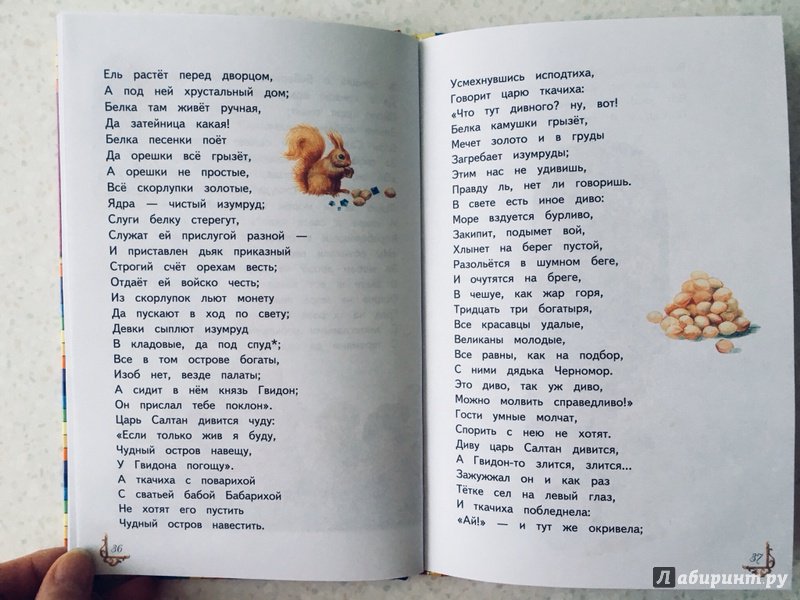 Ель растёт перед дворцом,
А под ней хрустальный дом;
Белка там живёт ручная,
Да затейница какая!
Белка песенки поёт
Да орешки всё грызёт,
А орешки не простые,
Всё скорлупки золотые,
Ядра — чистый изумруд;
Слуги белку стерегут,
Служат ей прислугой разной —
И приставлен дьяк приказный
Строгий счёт орехам весть;
Отдаёт ей войско честь;
Из скорлупок льют монету
Да пускают в ход по свету;
Девки сыплют изумруд
В кладовые, да под спуд*;
Все в том острове богаты,
Изоб нет, везде палаты;
А сидит в нём князь Гвидон;
Он прислал тебе поклон».
Царь Салтан дивится чуду:
«Если только жив я буду,
Чудный остров навещу,
У Гвидона погощу».
А ткачиха с поварихой
С сватьей бабой Бабарихой
Не хотят его пустить
Чудный остров навестить.
36
Усмехнувшись исподтиха,
Говорит царю ткачиха:
«Что тут дивного? ну, вот!
Белка камушки грызёт,
Мечет золото и в груды
Загребает изумруды;
Этим нас не удивишь,
Правду ль, нет ли говоришь.
В свете есть иное диво:
Море вздуется бурливо,
Закипит, подымет вой,
Хлынет на берег пустой,
Разольётся в шумном беге,
И очутятся на бреге,
В чешуе, как жар горя,
Тридцать три богатыря,
Все красавцы удалые,
Великаны молодые,
Все равны, как на подбор,
С ними дядька Черномор.
Это диво, так уж диво,
Можно молвить справедливо!»
Гости умные молчат,
Спорить с нею не хотят.
Диву царь Салтан дивится,
А Гвидон-то злится, злится...
Зажужжал он и как раз
Тётке сел на левый глаз,
И ткачиха побледнела:
«Ай!» — и тут же окривела;
37
Лабиринт.ру